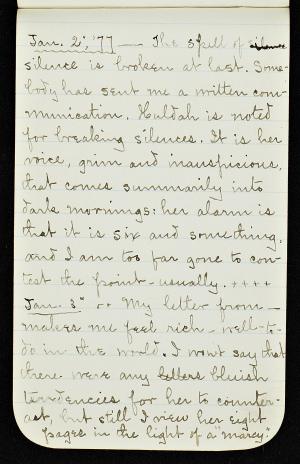 Jan. 2d, '77 — The spell of silence
silence is broken at last. Some-
body has sent me a written com-
munication. Huldah is noted
for breaking silences. It is her
voice, grim and inauspicious,
that comes summarily into
dark mornings: her alarm is
that it is six and something,
and I am too far gone to con-
test the point - usually. ++++
Jan. 3d -- My letter from —
makes me feel rich - well-to-
do in the world. I won't say that
there were any letters bluish
tendencies for her to counter-
act, but still I view her eight
pages in the light of a "marcy."